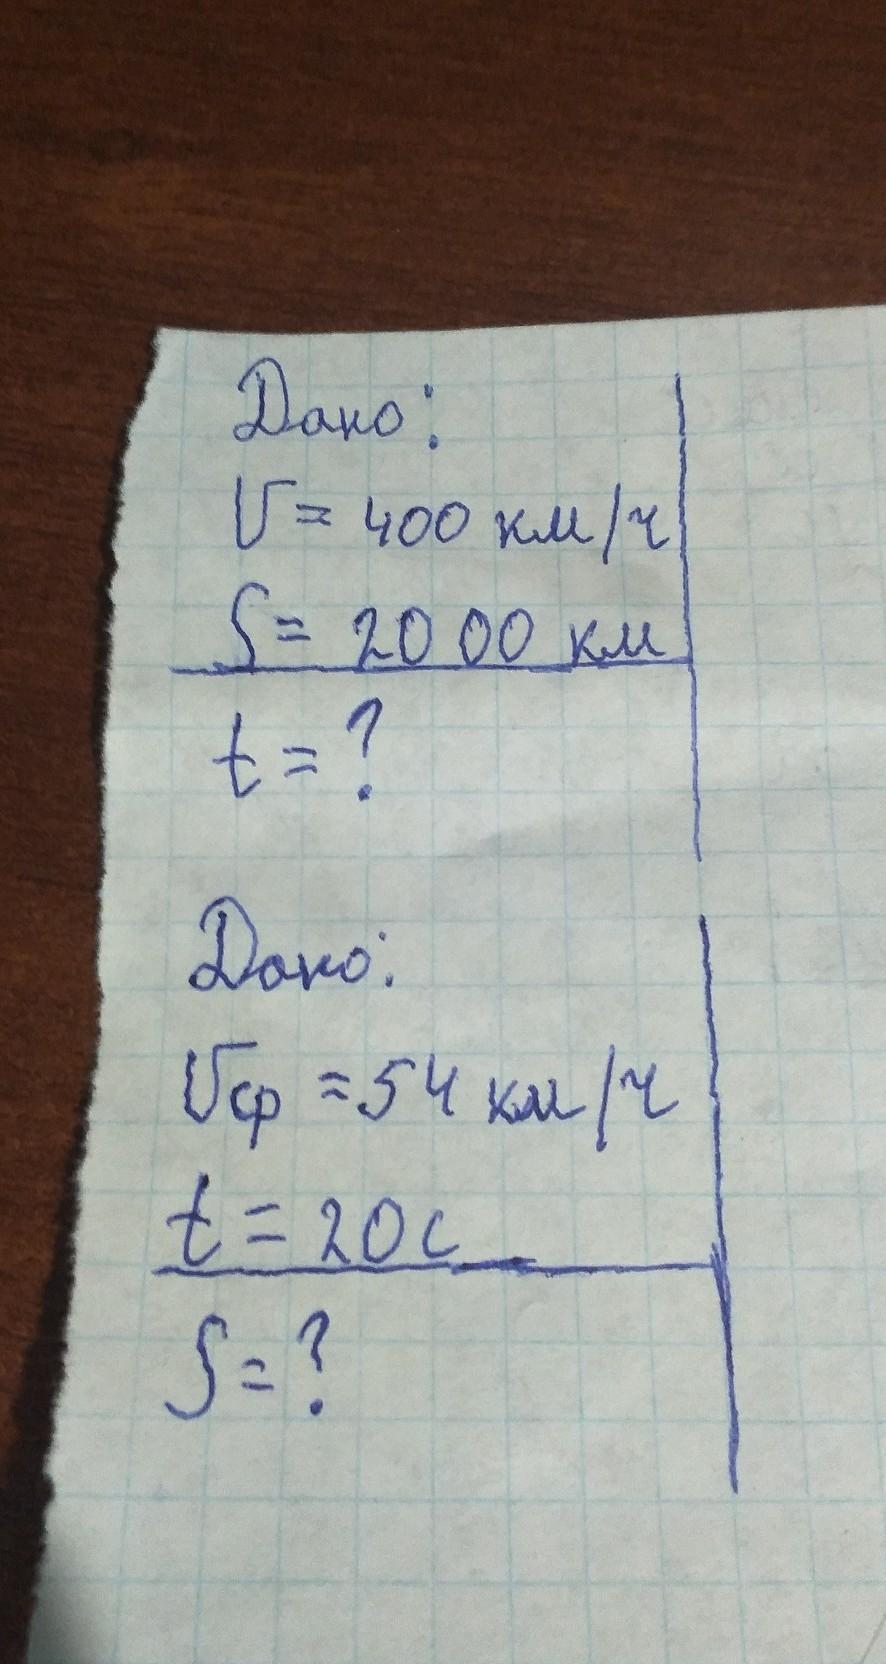 Дано:
V = 400 км/ч
S = 2000 км
t = ?
Дано:
Vср = 54 км/ч
t = 20 с
S = ?